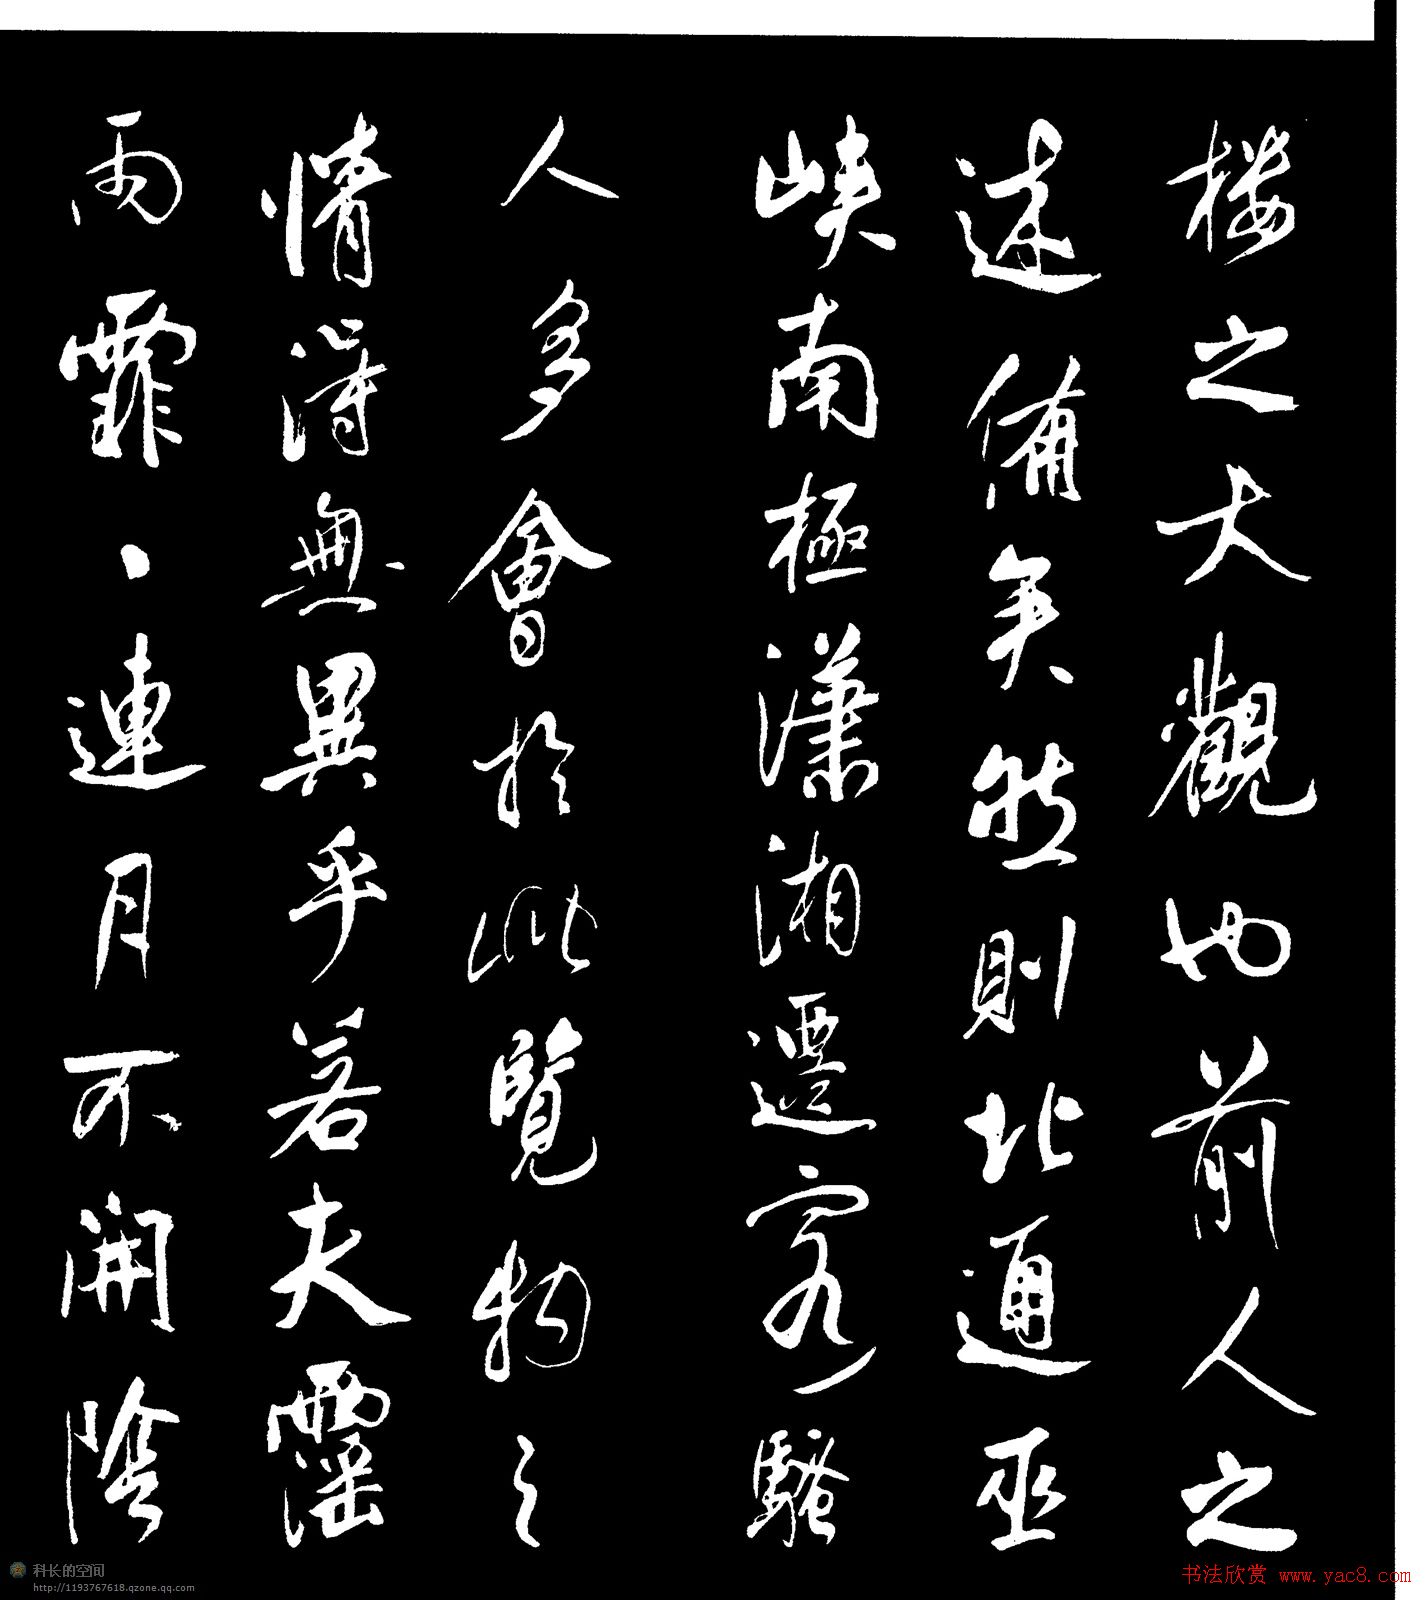 楼之大觀也前人之
述備矣然則北通巫
峽南極瀟湘遷客騷
人多會於此覽物之
情得無異乎若夫霪
雨霏、連月不開陰
科长的空间
http://1193767618.qzone.qq.com
书法欣赏 www.yac8.com